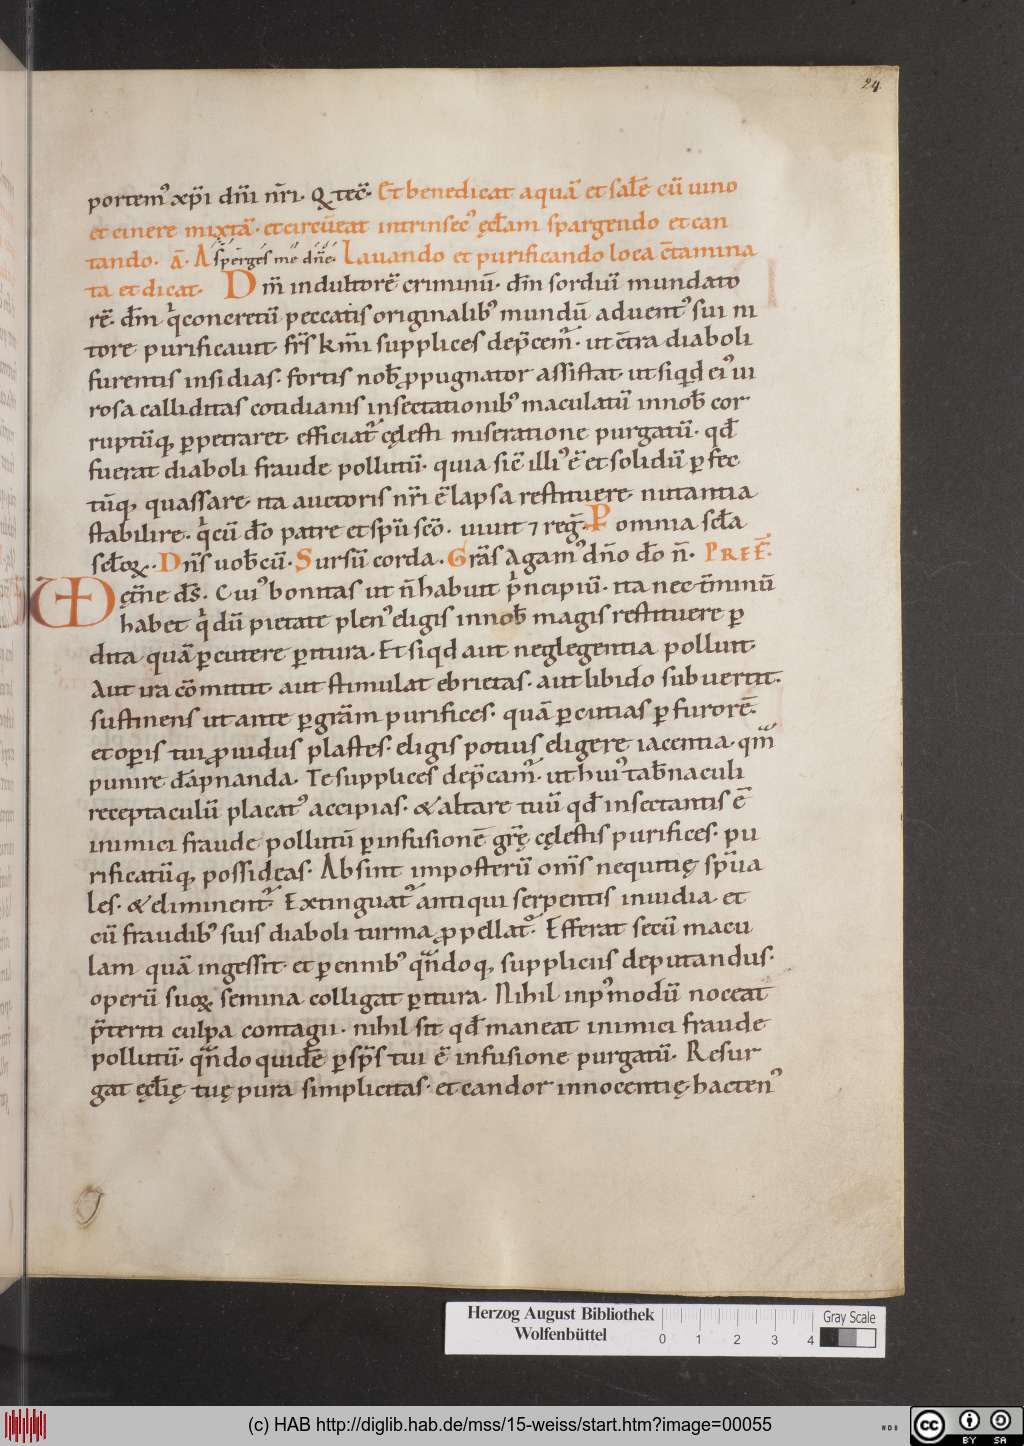 24
portem᾽ xp̄i dn̄i nr̄i. Q tec̄. Et benedicat aquā et salē cū uino
et cinere mixtā. et circūeat intrinsec᾽ ęcłam spargendo et can
tando. ā. Asperges me dn̄e. Lauando et purificando loca c̄tamina
ta et dicat. Dm̄ indultorē criminū. dm̄ sorduū mundato
rē. dm̄ qͥ concretū peccatis originalib᾽ mundū aduent᾽ sui ni
tore purificauit. fr̄s km̄i supplices dep̄cem᾽. ut c̄tra diaboli
furentis insidias. fortis nob̄ ꝓpugnator assistat. ut siqͥd ei᾽ ui
rosa calliditas cotidianis insectationib᾽ maculatū in nob̄ cor
ruptūq, ꝑpetraret. efficiat᾽ cęlesti miseratione purgatū. qd̄
fuerat diaboli fraude pollutū. quia sic̄ illi᾽ ē et solidū ꝑfec
tūq, quassare. ita auctoris nr̄i ē lapsa restituere. nutantia
stabilire. qͥ cū do̅ patre et spū sco̅. uiuit ⁊ reg̅. P omnia scła
scłoꝝ. Dn̄s uob̄cū. Sursū corda. Grās agam᾽ dn̄o do̅ n̄. PREF̄.
VD ęt̄ne ds̄. Cui᾽ bonitas ut n̄ habuit pͥncipiū. ita nec t̄minū
habet qͥ dū pietate plen᾽ eligis in nob̄ magis restituere ꝑ
dita quā ꝑcutere ꝑitura. Et siqd aut neglegentia polluit.
Aut ira cōmittit. aut stimulat ebrietas. aut libido subuertit.
sustinens ut ante ꝑ grām purifices. quā ꝑcutias ꝑ furorē.
et oꝑis tui ꝓuidus plastes. eligis potius eligere iacentia. qm̄
punire dāpnanda. Te supplices dep̄cam᾽. ut hui᾽ tab̄naculi
receptaculū placat᾽ accipias. & altare tuū qd̄ insectantis ē
inimici fraude pollutū ꝑ infusionē gr̄ę cęlestis purifices. pu
rificatūq, possideas. Absint imposterū om̄s nequitię spūa
les. & eliminent᾽. Extinguat᾽ antiqui serpentis inuidia. et
cū fraudib᾽ suis diaboli turma ꝓpellat᾽. Efferat secū macu
lam quā ingessit. et ꝑennib᾽ qn̄doq, suppliciis deputandus.
operū suoꝝ semina colligat ꝑitura. Nihil in p᾽modū noceat
p̄teriti culpa contagii. nihil sit qd̄ maneat inimici fraude
pollutū. qn̄do quidē ꝑ sp̄s tui ē infusione purgatū. Resur
gat ęcłię tuę pura simplicitas. et candor innocentię hacten᾽
Herzog August Bibliothek
Wolfenbüttel
0 1 2 3 4
Gray Scale
(c) HAB http://diglib.hab.de/mss/15-weiss/start.htm?image=00055
cc BY SA